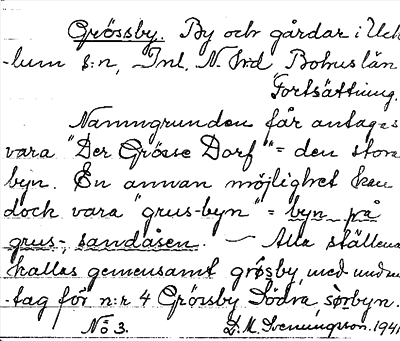 Grössby. By och gårdar i Uck
-lum s:n, Inl. N. Hrd Bohus län
Fortsättning.
Namngrunden får antages
vara "Der Grösse Dorf" = den stora
byn. En annan möjlighet kan
dock vara "grus-byn" = byn på
grus-, sandåsen. — Alla ställena
kallas gemensamt grøsby, med undan
-tag för n:r 4 Grössby Södra, sørbyn.
No 3. D. M. Svenungson. 1941